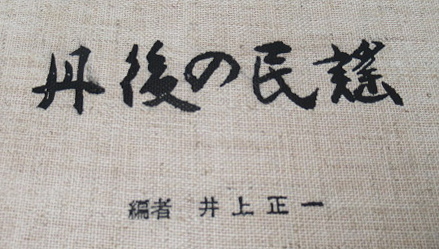 丹後の民謡
編者 井上正一